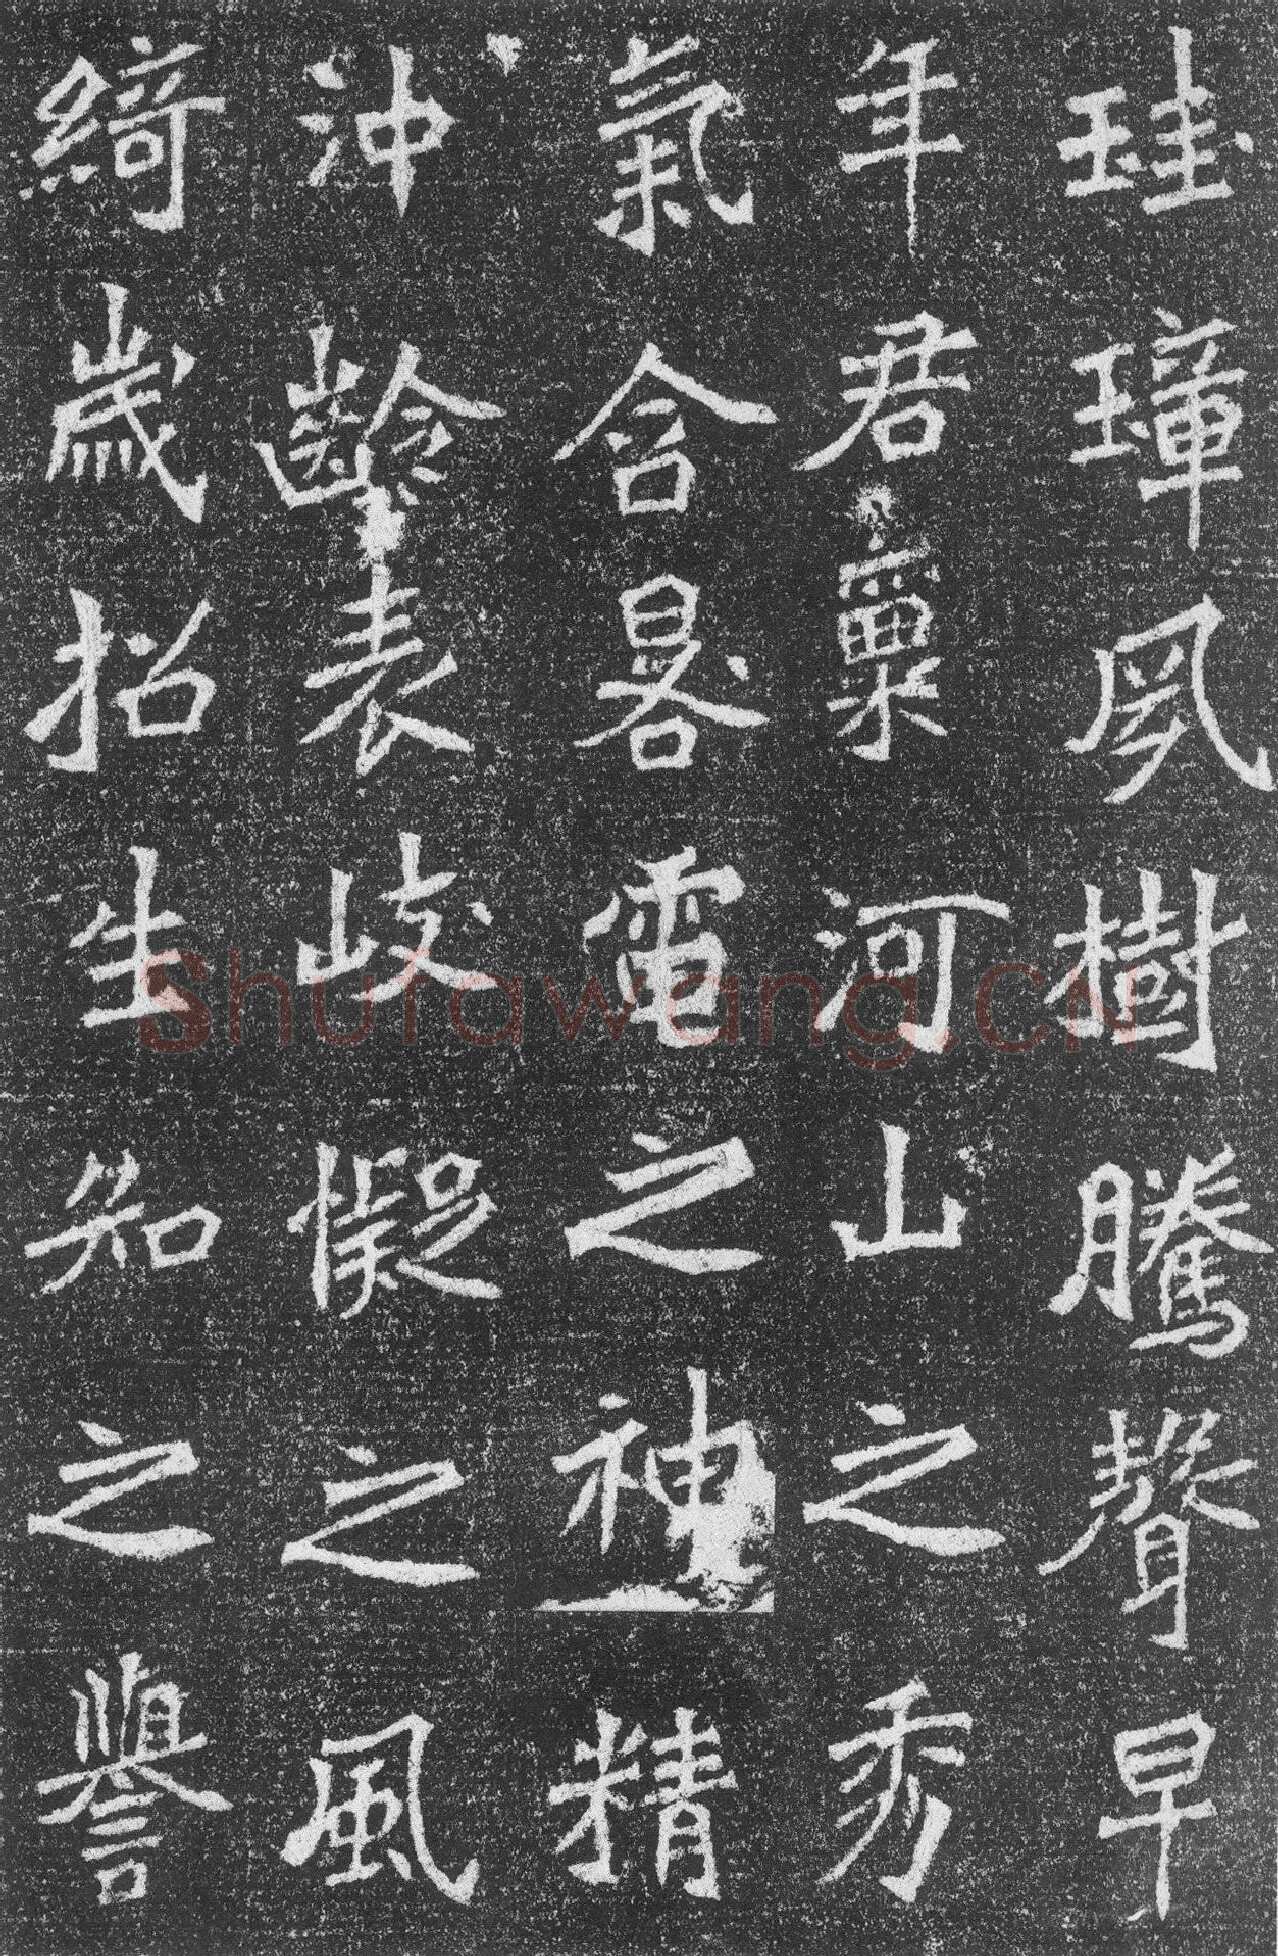 珪璋夙樹騰聲早
年君稟河山之秀
氣含晷電之神精
沖齡表岐懝之風
綺歲招生知之譽
Shufawang.CN